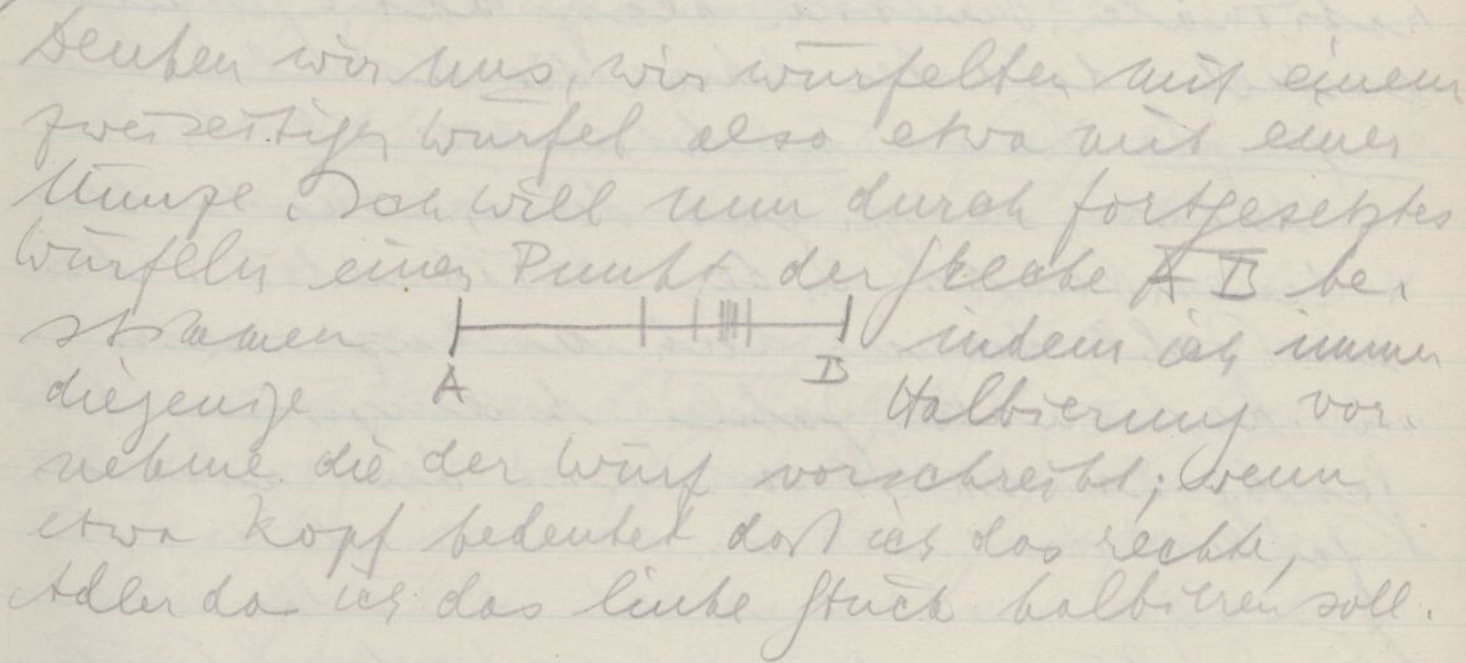 Denken wir uns, wir würfelten mit einem
zweiseitigen Würfel also etwa mit einer
Münze. Ich will nun durch fortgesetztes
Würfeln einen Punkt der Strecke A B be-
stimmen indem ich immer
A B
diejenige Halbierung vor-
nehme die der Wurf vorschreibt; wenn
etwa Kopf bedeutet daß ich das rechte,
Adler da ich das linke Stück halbieren soll.